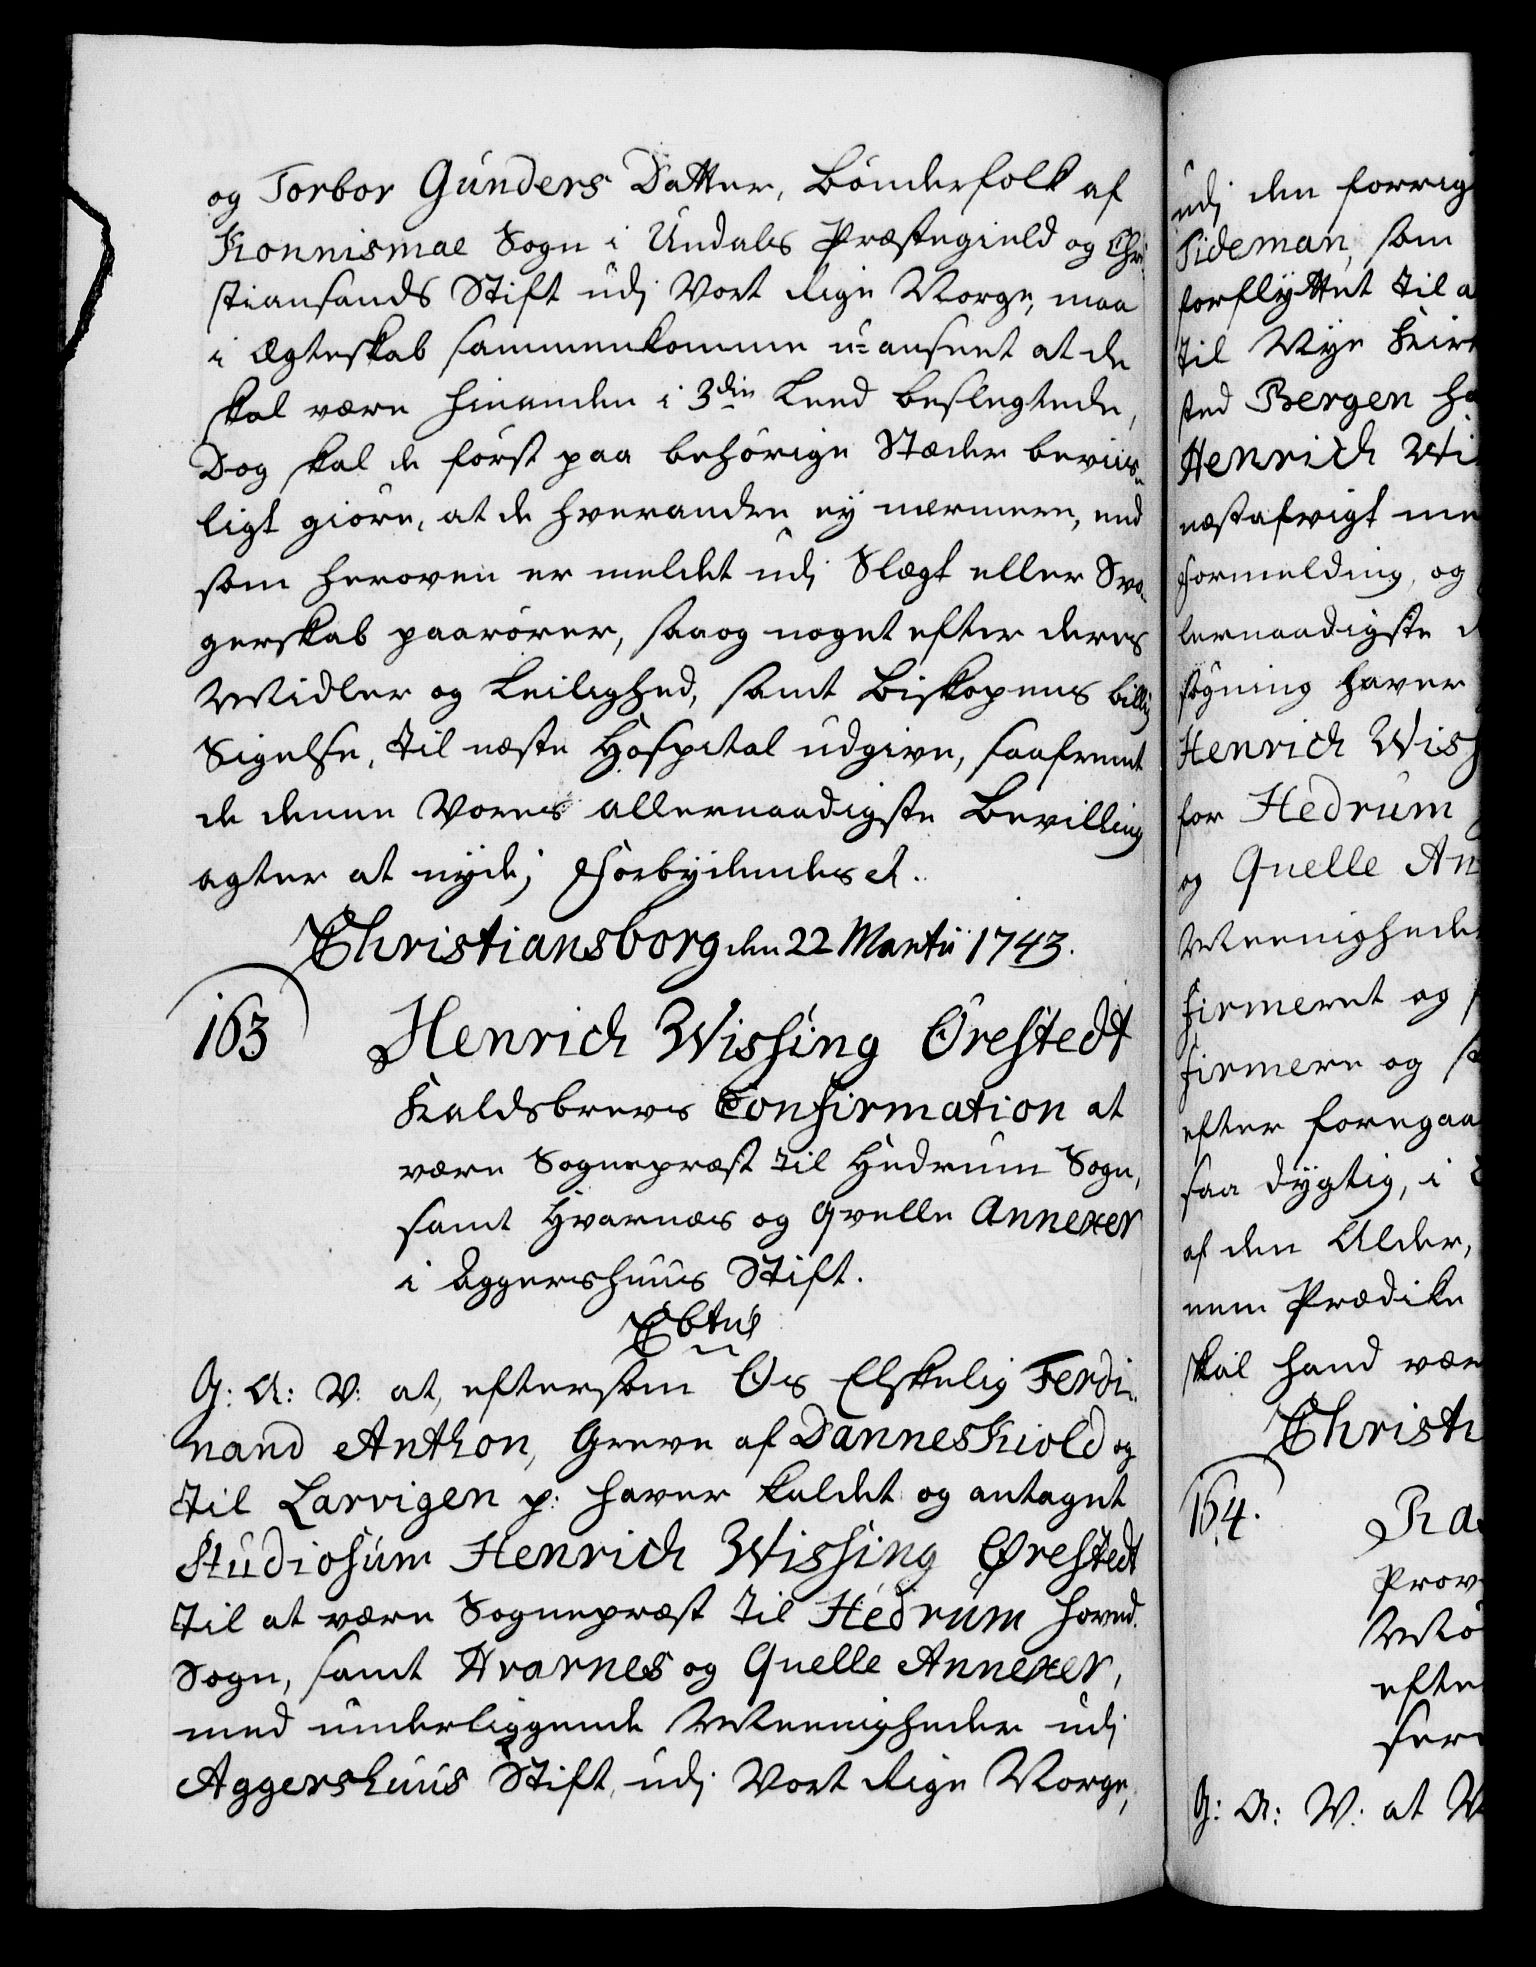 og Torbor Gunders Datter, Bønderfolk af
Konnismae Sogn i Undals Præstegield og Chri-
stiansands Stift udj Vort Rige Norge, maa
i Ægteskab sammenkomme u-anseet at de
skal være hinanden i 3die Leed beslegtede,
Dog skal de først paa behørige Stæder beviis-
ligt giøre, at de hverandre ey nærmere, end
som heroven er meldet udj Slægt eller Svo-
gerskab paarører, saaog noget efter deres
Midler og Leilighed, samt Biskopens billig
Sigelse, til næste Hospital udgive, saafremt
de denne Vores allernaadigste Bevilling
agter at nyde; Forbydendes &.
Christiansborg den 22 Martii 1743.
163
Henrich Wissing Ørestedt
Kaldsbrevs Confirmation at
være Sognepræst til Hedrum Sogn,
samt Hvarnæs og Qvelle Annexer
i Aggershuus Stift.
G: A: V: at, eftersom Os Elskelig Ferdi-
nand Anthon, Greve af Danneskiold og
til Larvigen p: haver kaldet og antaget
Studiosum Henrich Wissing Ørestedt
til at være Sognepræst til Hedrum hoved-
Sogn, samt Hvarnes og Quelle Annexer,
med underliggende Meenigheder udj
Aggershuus Stift, udj Vort Rige Norge,
udj den forrig
Tideman, som
forflyttet til a
til Nye Kir
sted Bergen ha
Henrich Wi
næstafvigt me
Formelding, og
lernaadigste
søgning haver
Henrich Wiss
for Hedrum
og Quelle An
Meenigheder
firmeret og
firmere og
efter foregaa
saa dygtig, i
af den Alder,
nem Prædike
skal hand vær
Christi
164.
Ra
Prov
Mo
efte
G: A: V: at